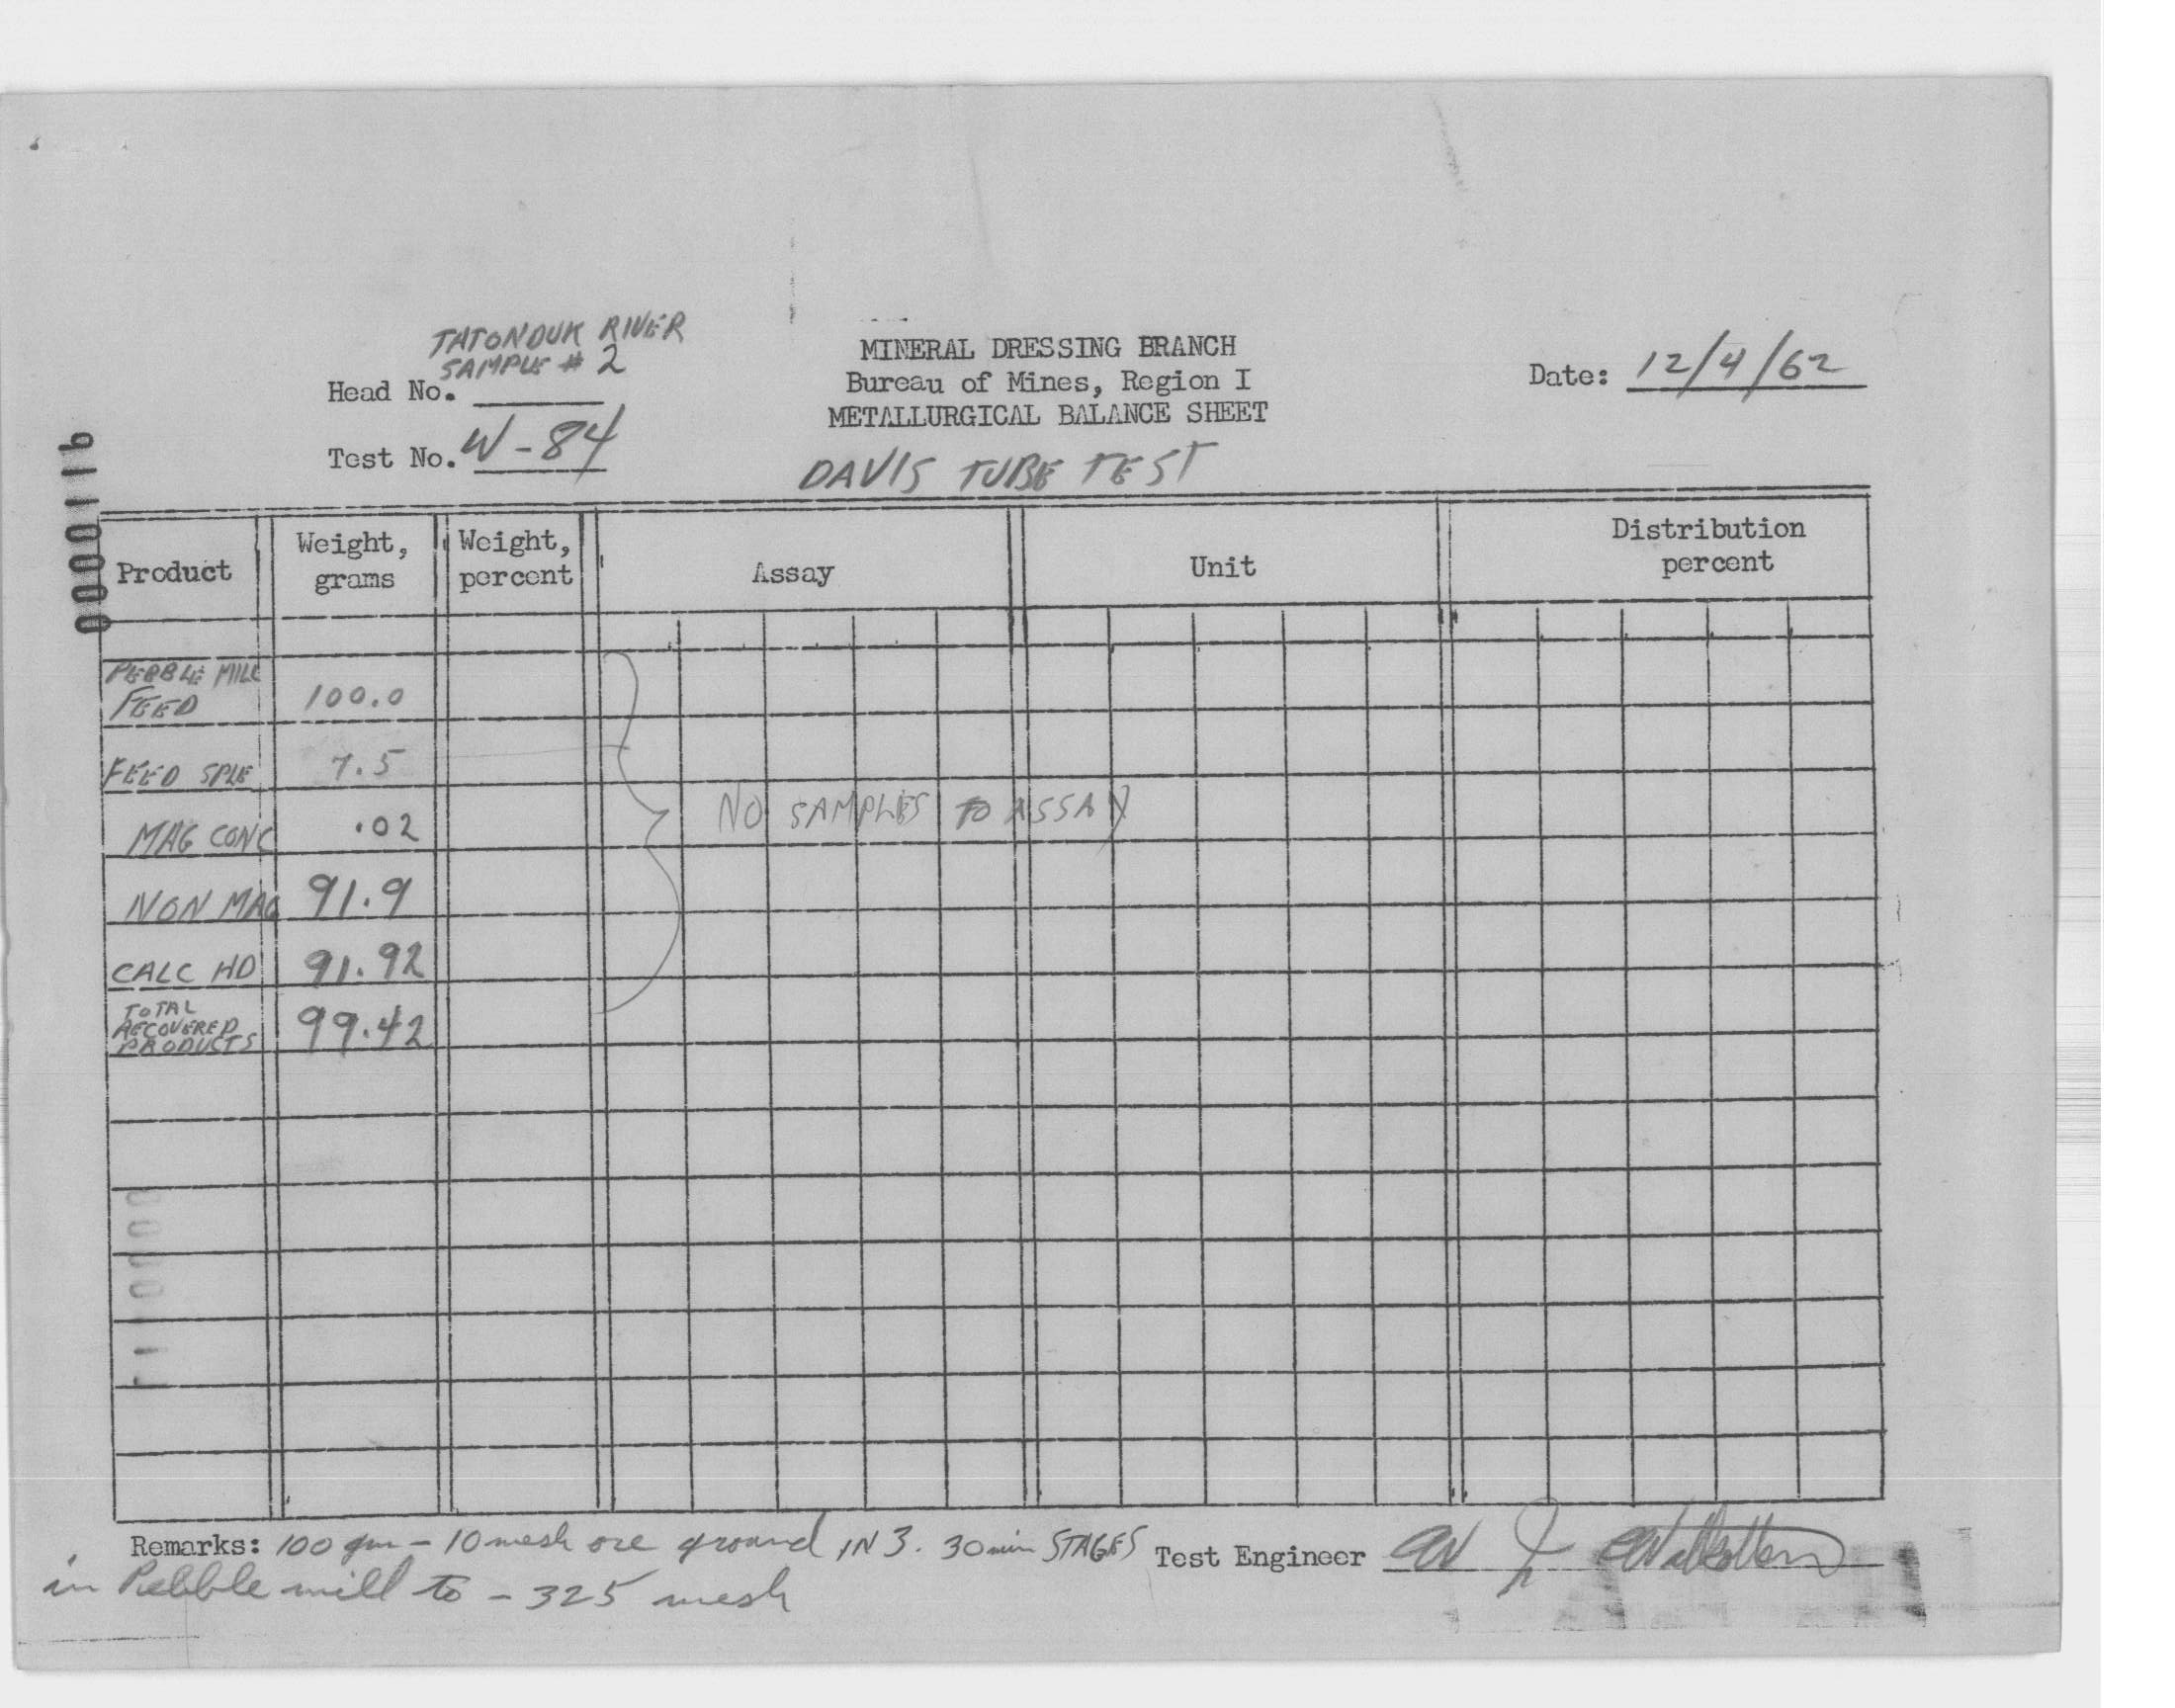 TATONDUK RIVER
SAMPLE # 2
Head No.
Test No. W-84
MINERAL DRESSING BRANCH
Bureau of Mines, Region I
METALLURGICAL BALANCE SHEET
DAVIS TUBE TEST
Date: 12/4/62
000011b
Product Weight, grams Weight, percent Assay Unit Distribution percent
PEBBLE MILL
FEED 100.0
FEED SPLE 7.5
MAG CONC .02
NO SAMPLES TO ASSAY
NON MAG 91.9
CALC HD 91.92
TOTAL
RECOVERED
PRODUCTS 99.42
Remarks: 100 gm - 10 mesh ore ground IN 3. 30 min STAGES
in Pebble mill to - 325 mesh
Test Engineer